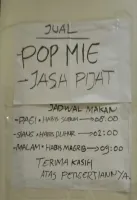 JUAL
-POP MIE
-JASA PIJAT
JADWAL MAKAN
-PAGI • HABIS SUBUH → 08:00
-SIANG • HABIS DUHUR → 02:00
-MALAM • HABIS MAGRIB → 09:00
TERIMA KASIH
ATAS PENGERTIANNYA